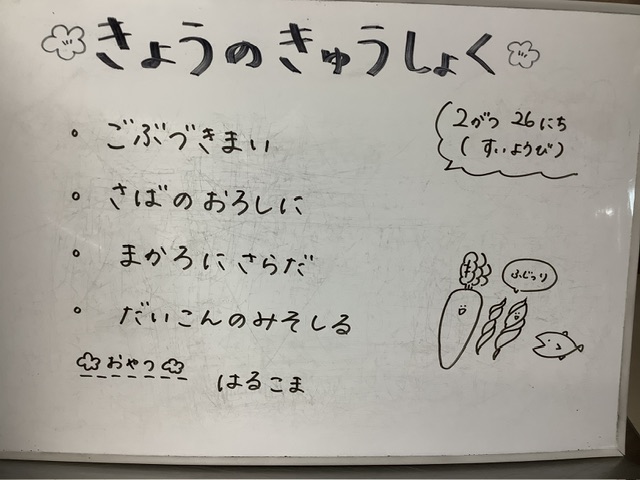 きょうのきゅうしょく
2がつ 26にち
(すいようび)
・ごぶづきまい
・さばのおろしに
・まかろにさらだ
・だいこんのみそしる
おやつ はるこま
ふじっり